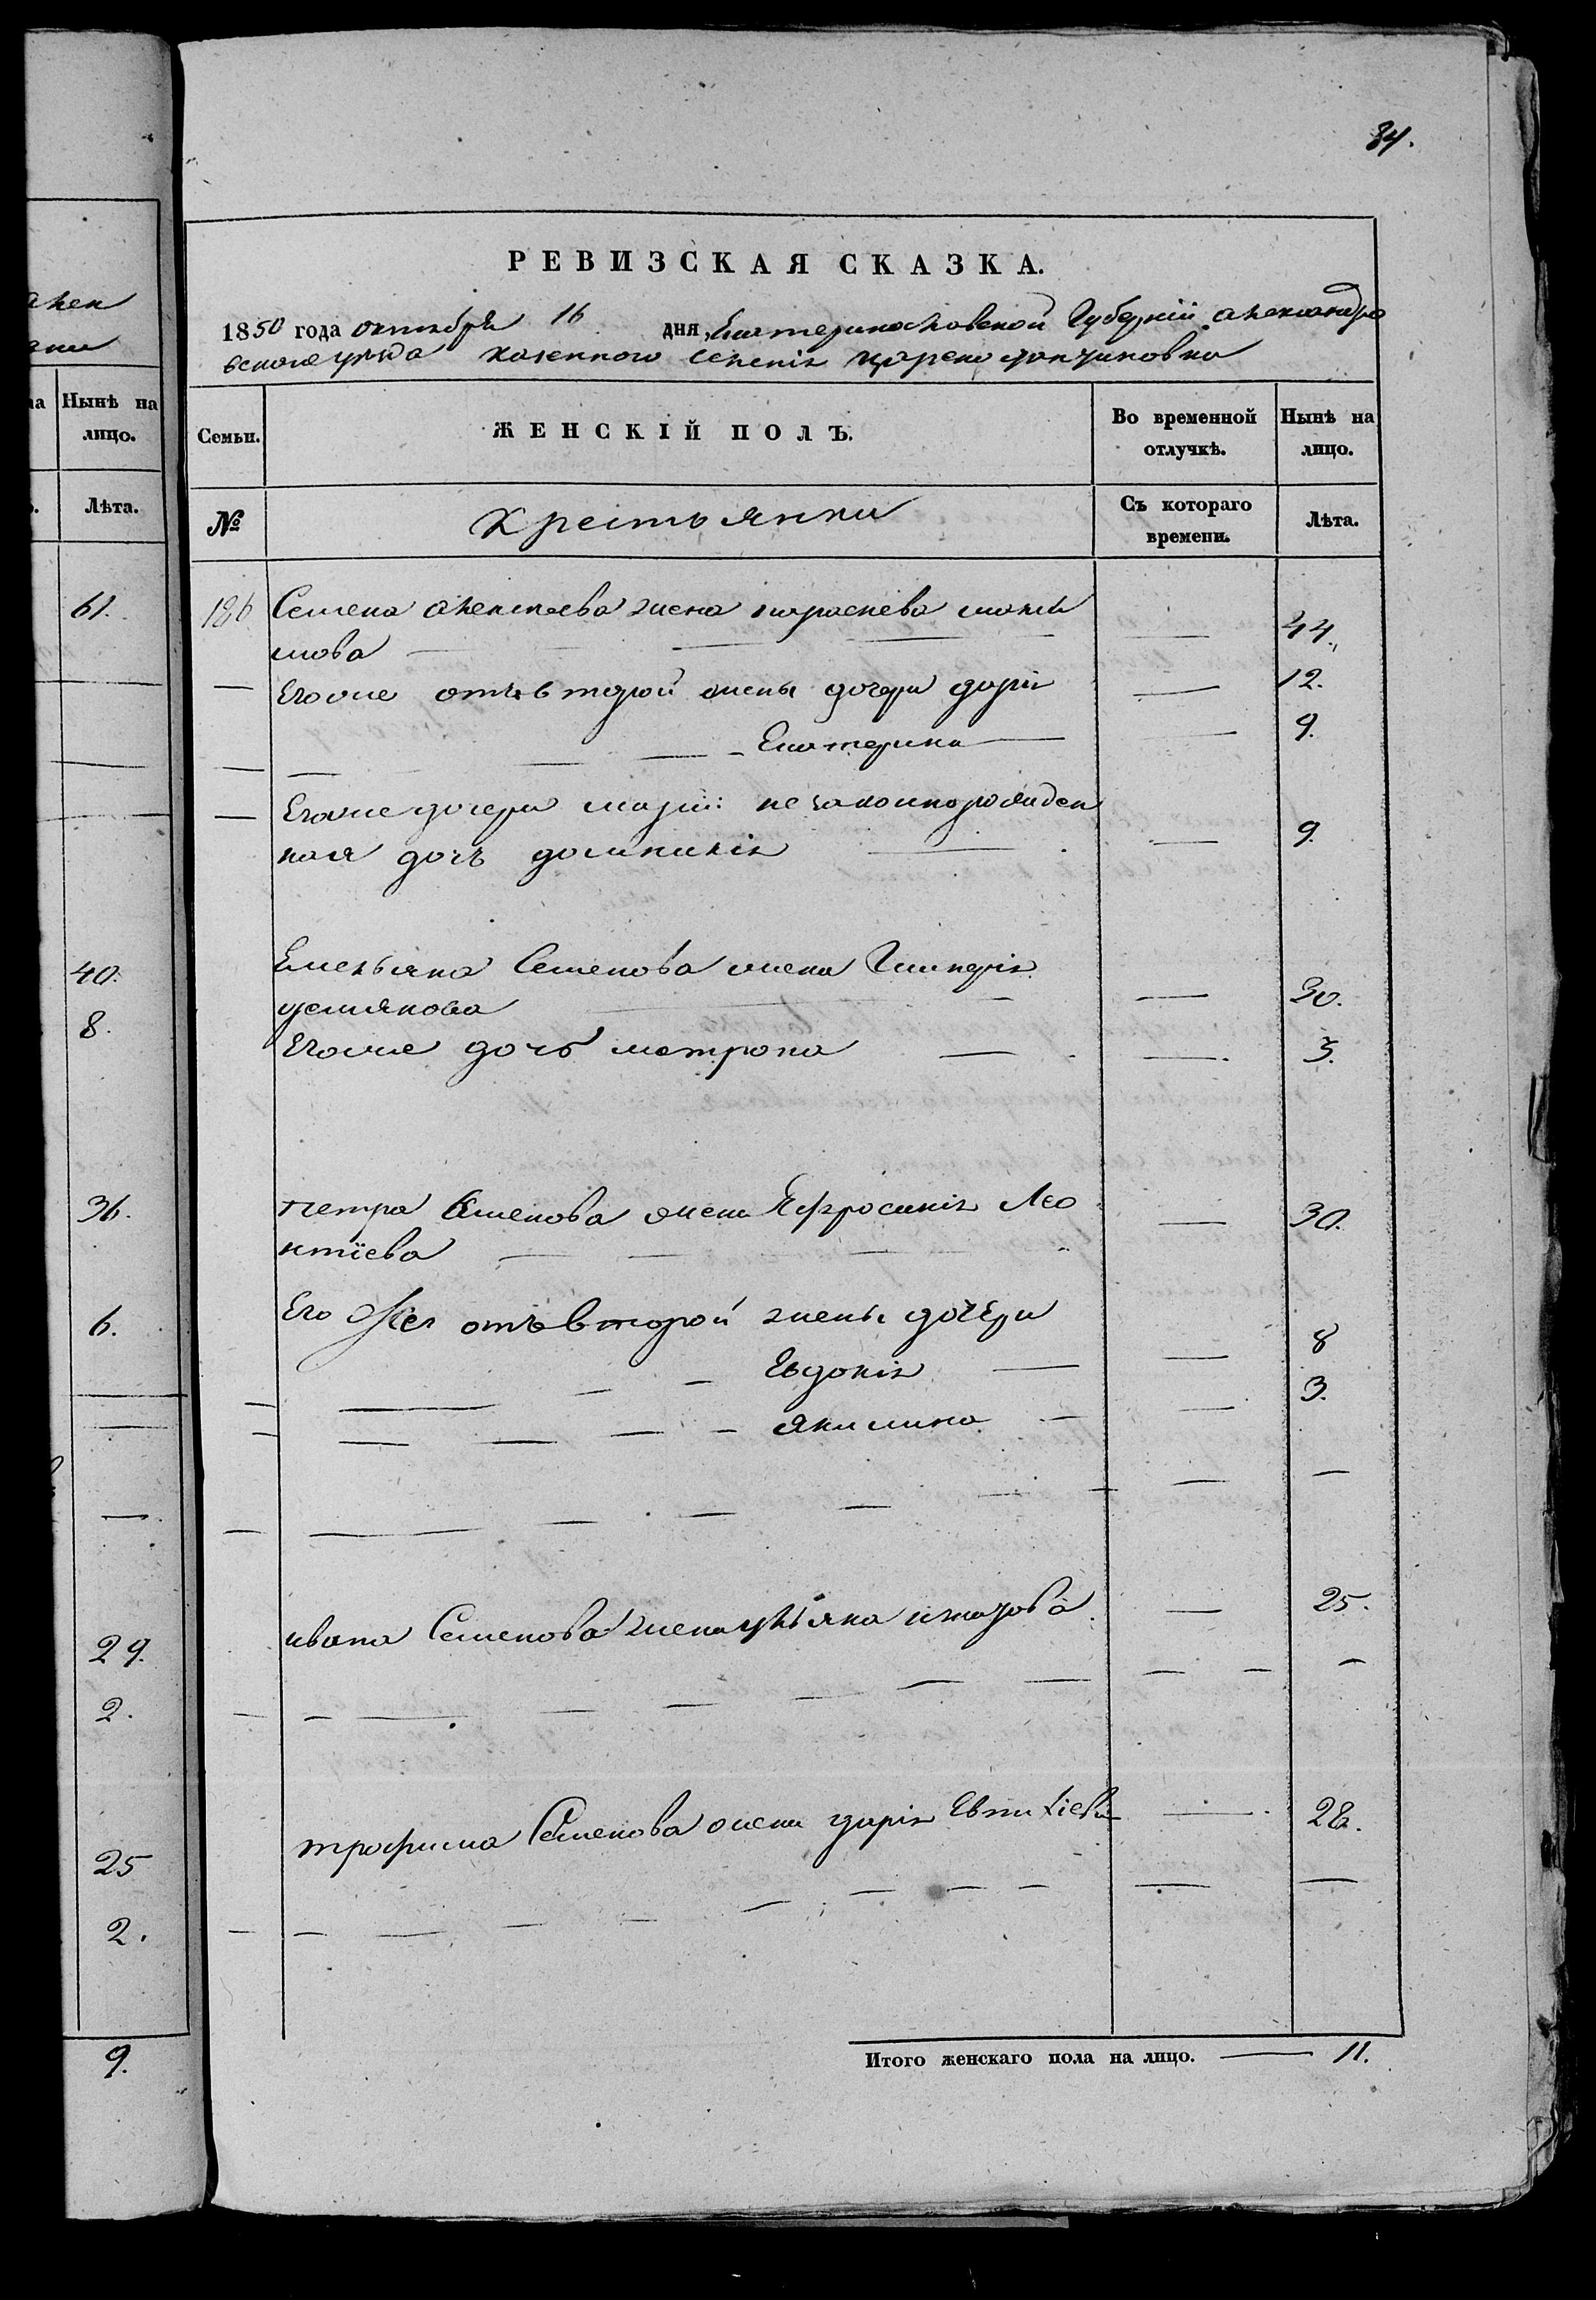 акен
Нынѣ на
лицо.
Лѣта.
61.
40.
8.
36.
6.
29.
2.
25
2.
9.
84.
РЕВИЗСКАЯ СКАЗКА.
1850 года октября 16 дня, Екатеринославской Губерніи Александро
вского уѣзда казенного селенія
Семьи. ЖЕНСКІЙ ПОЛЪ. Во временной отлучкѣ. Нынѣ на лицо.
№ Крестьянки Съ котораго времени. Лѣта.
186 Семена Алексеева жена параскева макси
мова — — — 44.
— Егоже отъ второй жены дочери дарія — 12.
— — — — Екатерина — — 9.
— Егоже дочери маріи незаконнорожден
ная дочь домникія — — 9.
Емельяна Семенова жена Гликерія
устимова — — — 30.
Егоже дочь матрона — — 3.
петра Семенова жена Ефросинія Лео
нтіева — — — 30.
Его же отъ второй жены дочери
— — — — Евдокія — — 8
— — — — — Акилина — — 3.
— — — — — — — —
ивана Семенова жена ульяна назарова — 25.
— — — — — — — — — —
трофима Семенова жена дарія Евтихіева — 28.
— — — — — — — — — —
Итого женскаго пола на лицо. — 11.